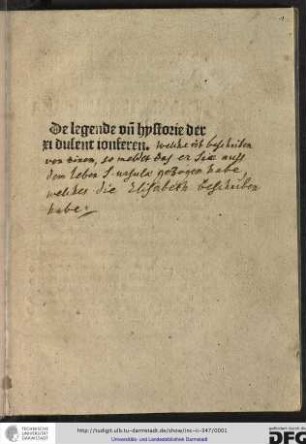 De legende vñ hystorie der
xi dusent ionferen. welche ist beschriben
von einem, so meldet das er Sie auss
dem Leben S. ursula gezogen habe,
welches die Elisabeth beschriben
habe.
TECHNISCHE
UNIVERSITÄT
DARMSTADT
http://tudigit.ulb.tu-darmstadt.de/show/inc-iv-347/0001
Universitäts- und Landesbibliothek Darmstadt
gefördert durch die
DFG